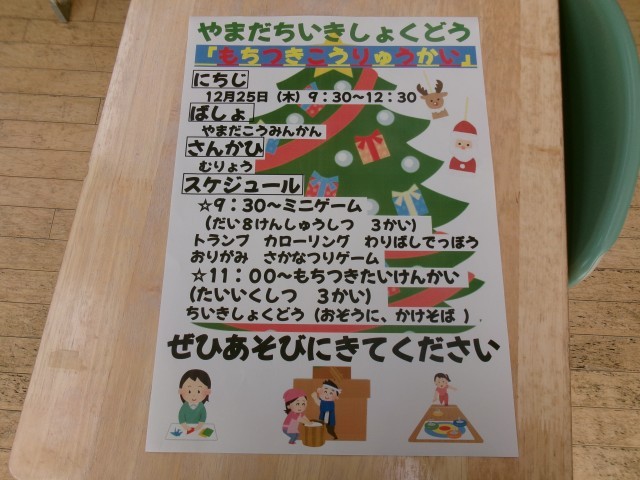 やまだちいきしょくどう
「もちつきこうりゅうかい」
にちじ
12月25日（木）9：30～12：30
ばしょ
やまだこうみんかん
さんかひ
むりょう
スケジュール
☆9：30～ミニゲーム
（だい8けんしゅうしつ　3かい）
トランプ　カローリング　わりばしでっぽう
おりがみ　さかなつりゲーム
☆11：00～もちつきたいけんかい
（たいいくしつ　3かい）
ちいきしょくどう（おぞうに、かけそば ）
ぜひあそびにきてください